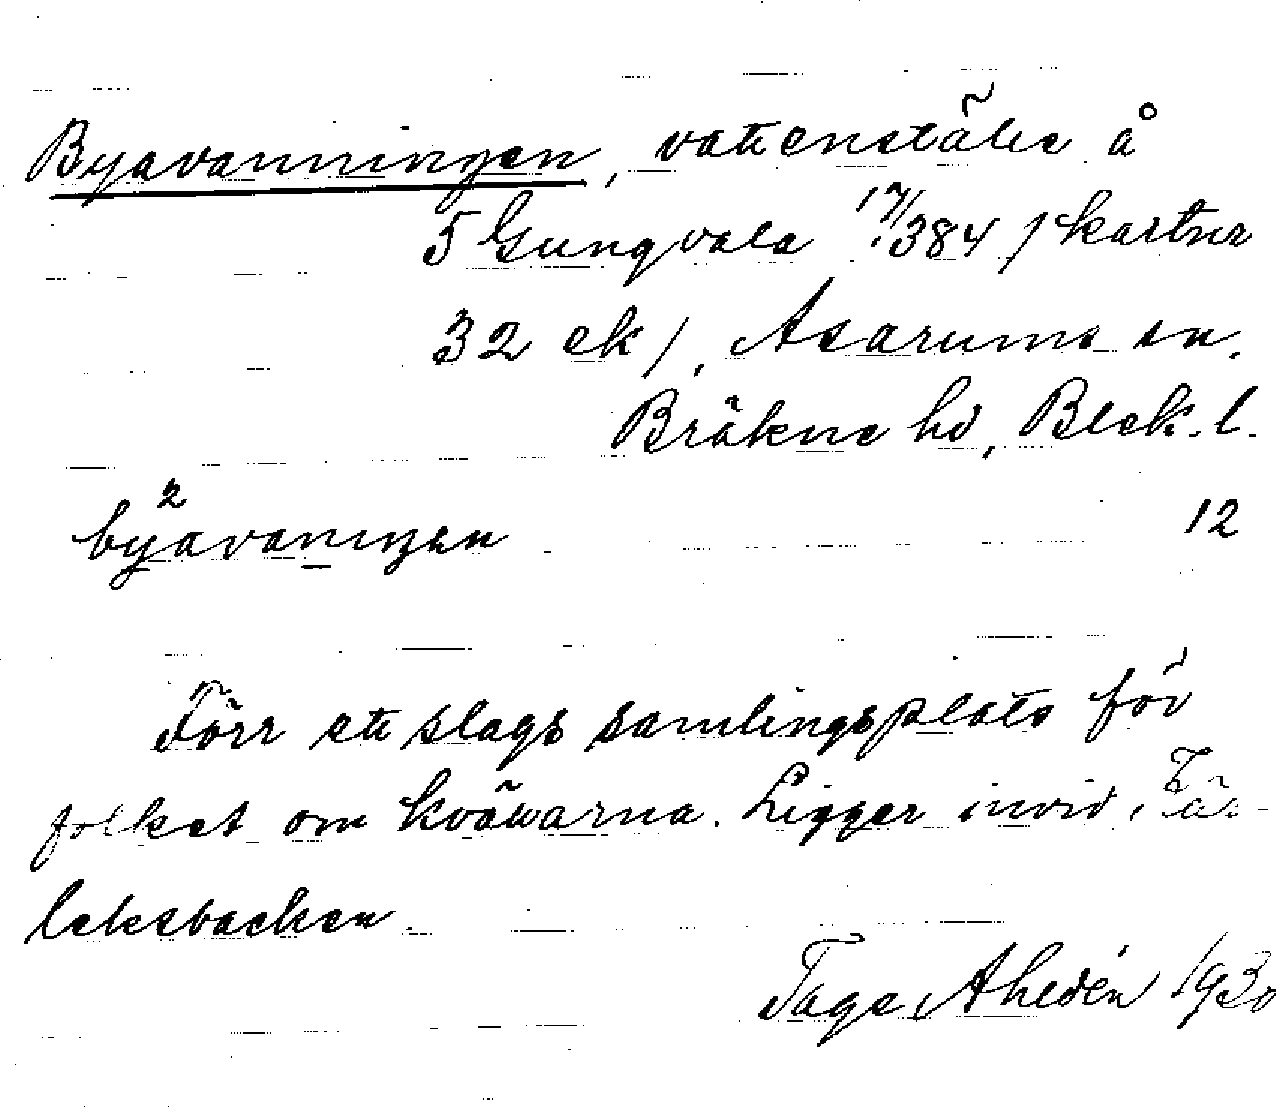 Byavanningen, vattenställe å
5 Gungvala 17/384 / kartnr
32 ek /, Asarums sn.
Bräkne hd, Blek. l.
by2avaningen 12
Förr ett slags samlingsplats för
folket om kvällarna. Ligger invid
leksbacken.
Tage Ahldén 1930